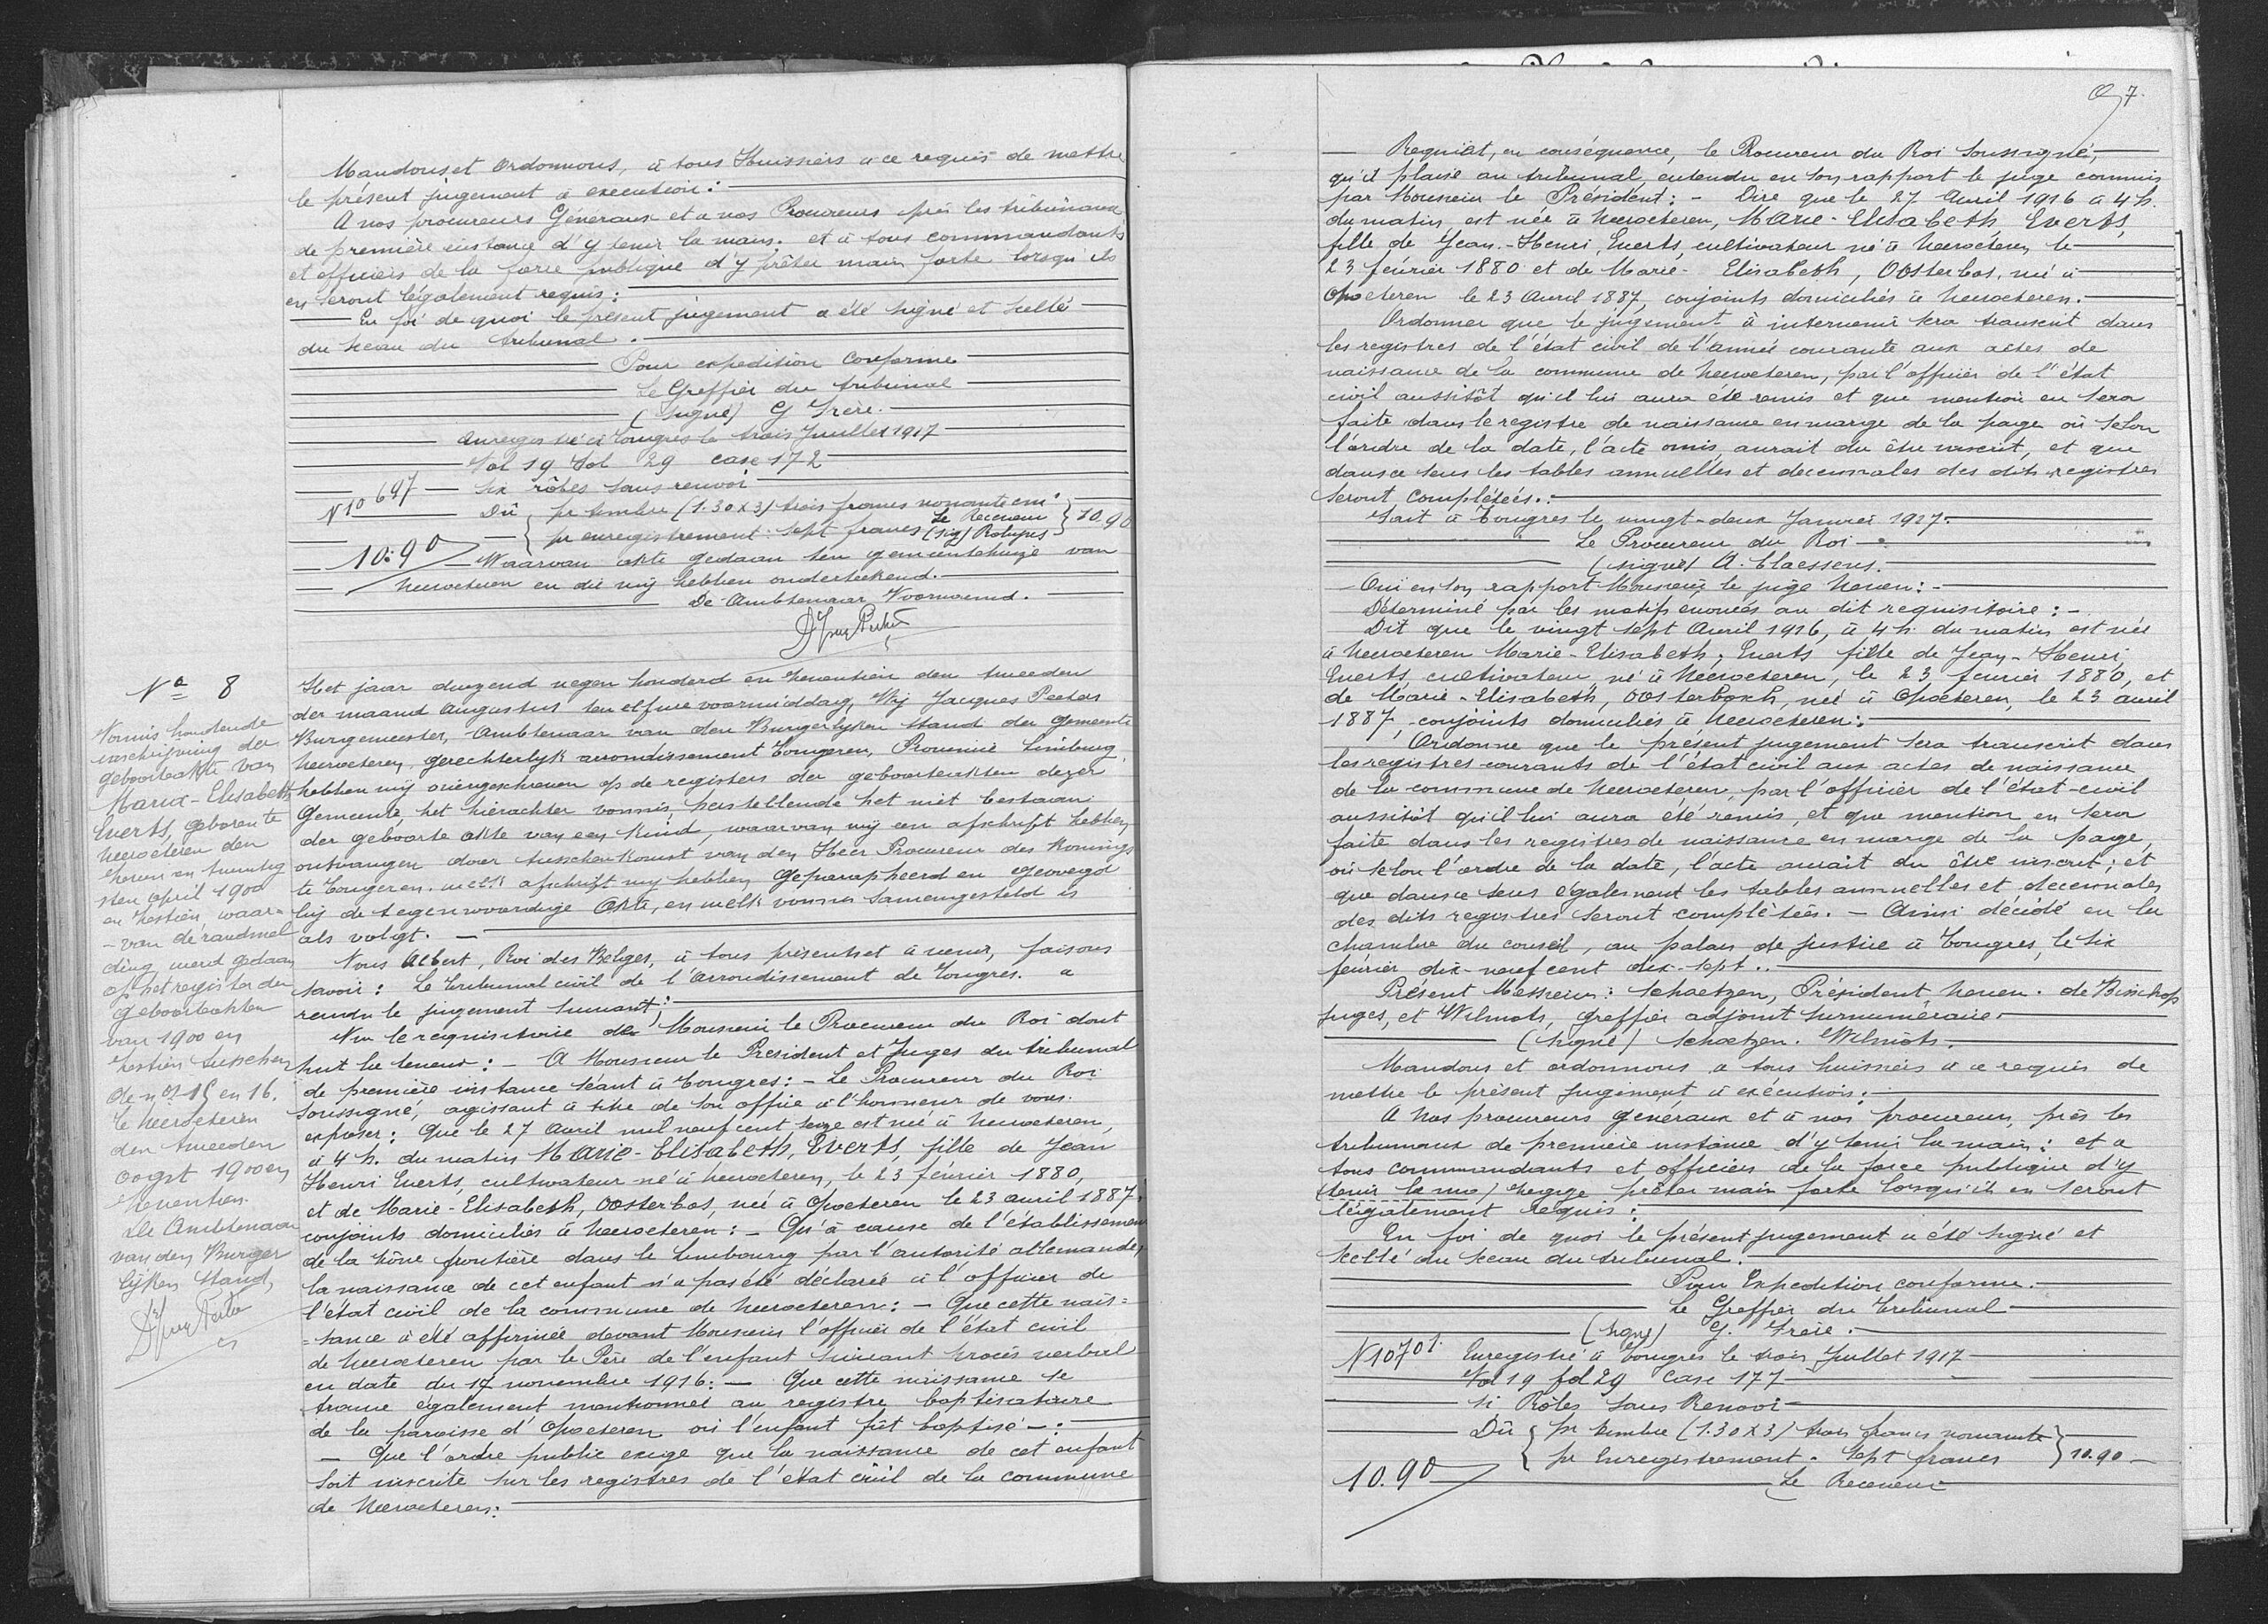 Mandons et Ordonnons, à tous Huissiers à ce requis de mettre
le présent jugement à execution :
A nos procureurs Généraux et à nos Procureurs près les tribunaux
de première instance d'y tenir la main. et à tous commandants
et officiers de la force publique d'y prêter main forte lorsqu'ils
en seront légalement requis :
En foi de quoi le présent jugement a été signé et scellé
du sceau du tribunal.
Pour expedition conforme
Le Greffier du tribunal
(signé) G Frère.
Enregistré à Tongres le trois Juillet 1917
Vol 19 fol 29 case 172
Six rôles sans renvoi
N 10697
Dû { pr timbre (1.30 x 3) trois francs nonante cm.
pr enregistrement : sept francs Le Receveur (sig) } 10.90
10.90
Waarvan akte gedaan ten gemeentehuize van
Neeroeteren en die wij hebben onderteekend.
De Ambtenaar Voornoemd.
No 8
Vonnis houdende
inschrijving der
geboorteakte van
Maria-Elisabeth
Everts, geboren te
Neeroeteren den
zeven en twintig
sten April 1900
en zestien, waar-
van de randmel
ding werd gedaan
op het register der
geboorteakten
van 1900 en
zestien tusschen
de nos 15 en 16.
Te Neeroeteren
den tweeden
oogst 1900 en
zeventien.
De Ambtenaar
van den Burger
lijken Stand,
Het jaar duizend negen honderd en zeventien den tweeden
der maand Augustus ten elf ure voormiddag, Wij Jacques Peeters
Burgemeester, Ambtenaar van den Burgerlijken Stand der Gemeente
Neeroeteren, gerechterlijk arrondissement Tongeren, Provincie Limburg,
hebben wij overgeschreven op de registers der geboorteakten dezer
Gemeente, het hierachter vonnis, vaststellende het niet bestaan
der geboorte akte van een kind, waarvan wij een afschrift hebben
ontvangen door tusschenkomst van den Heer Procureur des Konings
te Tongeren. welk afschrift wij hebben geparapheerd en gevoegd
bij de tegenwoordige Akte, en welk vonnis samengesteld is
als volgt. —
Nous Albert, Roi des Belges, à tous présents et à venir, faisons
savoir : Le tribunal civil de l'arrondissement de Tongres. a
rendu le jugement suivant ;
Vu le requisitoire de Monsieur le Procureur du Roi dont
suit la teneur : — A Monsieur le President et Juges du tribunal
de première instance séant à Tongres : — Le Procureur du Roi
soussigné, agissant à titre de son office à l'honneur de vous.
exposer : Que le 27 Avril mil neuf cent seize est né à Neeroeteren,
à 4 h. du matin Marie-Elisabeth, Everts, fille de Jean
Henri Everts, cultivateur né à Neeroeteren, le 23 février 1880,
et de Marie-Elisabeth, Oosterbos, née à Opoeteren le 23 avril 1887.
conjoints domiciliés à Neeroeteren : — Qu'à cause de l'établissement
de la zône frontière dans le Limbourg par l'autorité allemande,
la naissance de cet enfant n'a pas été déclarée à l'officier de
l'état civil de la commune de Neeroeteren : — Que cette nais=
=sance a été affirmée devant Monsieur l'officier de l'état civil
de Neeroeteren par le Père de l'enfant suivant procès verbal
en date du 17 novembre 1916 : — Que cette naissance se
trouve également mentionnée au registre baptiscataire
de la paroisse d'Opoeteren où l'enfant fût baptisé — :
— Que l'ordre public exige que la naissance de cet enfant
soit inscrite sur les registres de l'état civil de la commune
de Neeroeteren :
7.
— Requiert, en conséquence, le Procureur du Roi soussigné,
qu'il plaise au tribunal entendu en son rapport le juge commis
par Monsieur le Président : — Dire que le 27 Avril 1916 à 4 h.
du matin est née à Neeroeteren, Marie-Elisabeth Everts,
fille de Jean-Henri Everts, cultivateur né à Neeroeteren le
23 février 1880 et de Marie-Elisabeth, Oosterbos, née à
Opoeteren le 23 Avril 1887, conjoints domiciliés à Neeroeteren.
Ordonner que le jugement à intervenir sera transcrit dans
les registres de l'état civil de l'année courante aux actes de
naissance de la commune de Neeroeteren, par l'officier de l'état
civil aussitôt qu'il lui aura été remis et que mention en sera
faite dans le registre de naissance en marge de la page où selon
l'ordre de la date, l'acte omis, aurait du être inscrit, et que
dans ce sens les tables annuelles et decennales des dits registres
seront complétées. :
Fait à Tongres le vingt-deux Janvier 1917.
Le Procureur du Roi
(signé) A. Claessens.
Ouï en son rapport Monsieur le juge Neven : —
Déterminé par les motifs enoncés au dit requisitoire : —
Dit que le vingt sept Avril 1916, à 4 h. du matin est née
à Neeroeteren Marie-Elisabeth, Everts fille de Jean-Henri
Everts, cultivateur, né à Neeroeteren, le 23 fevrier 1880, et
de Marie-Elisabeth, Oosterbosch, née à Opoeteren, le 23 avril
1887, conjoints domiciliés à Neeroeteren :
Ordonne que le présent jugement sera transcrit dans
les registres courants de l'état civil aux actes de naissance
de la commune de Neeroeteren, par l'officier de l'état-civil
aussitôt qu'il lui aura été remis, et que mention en sera
faite dans les registres de naissance en marge de la page,
où selon l'ordre de la date, l'acte aurait du être inscrit ; et
que dans ce sens également les tables annuelles et decennales
des dits registres seront complétées. — Ainsi décidé en la
chambre du conseil, au palais de justice à Tongres, le six
février dix-neuf cent dix-sept..
Présent Messieurs : Schaetzen, Président, Neven. de Bisschop
juges, et Wilmots, greffier adjoint surnuméraire.
(signé) Schaetzen. Wilmots.
Mandons et ordonnons à tous huissiers à ce requis de
mettre le présent jugement à exécution :
A Nos procureurs généraux et à nos procureurs, près les
tribunaux de première instance d'y tenir la main : et à
tous commandants et officiers de la force publique d'y
prêter main forte lorsqu'il en seront
légalement requis :
En foi de quoi le présent jugement a été signé et
scellé du sceau du tribunal.
Pour Expedition conforme.
Le Greffier du Tribunal
(signé) G. Frère.
N 10701. Enregistré à Tongres le trois Juillet 1917
Vol 19 fol 29 Case 177
Rôles Sans Renvoi
Dû { pr timbre (1.30 X 3) trois francs nonante
pr Enregistrement. Sept francs } 10.90 —
10.90
Le Receveur